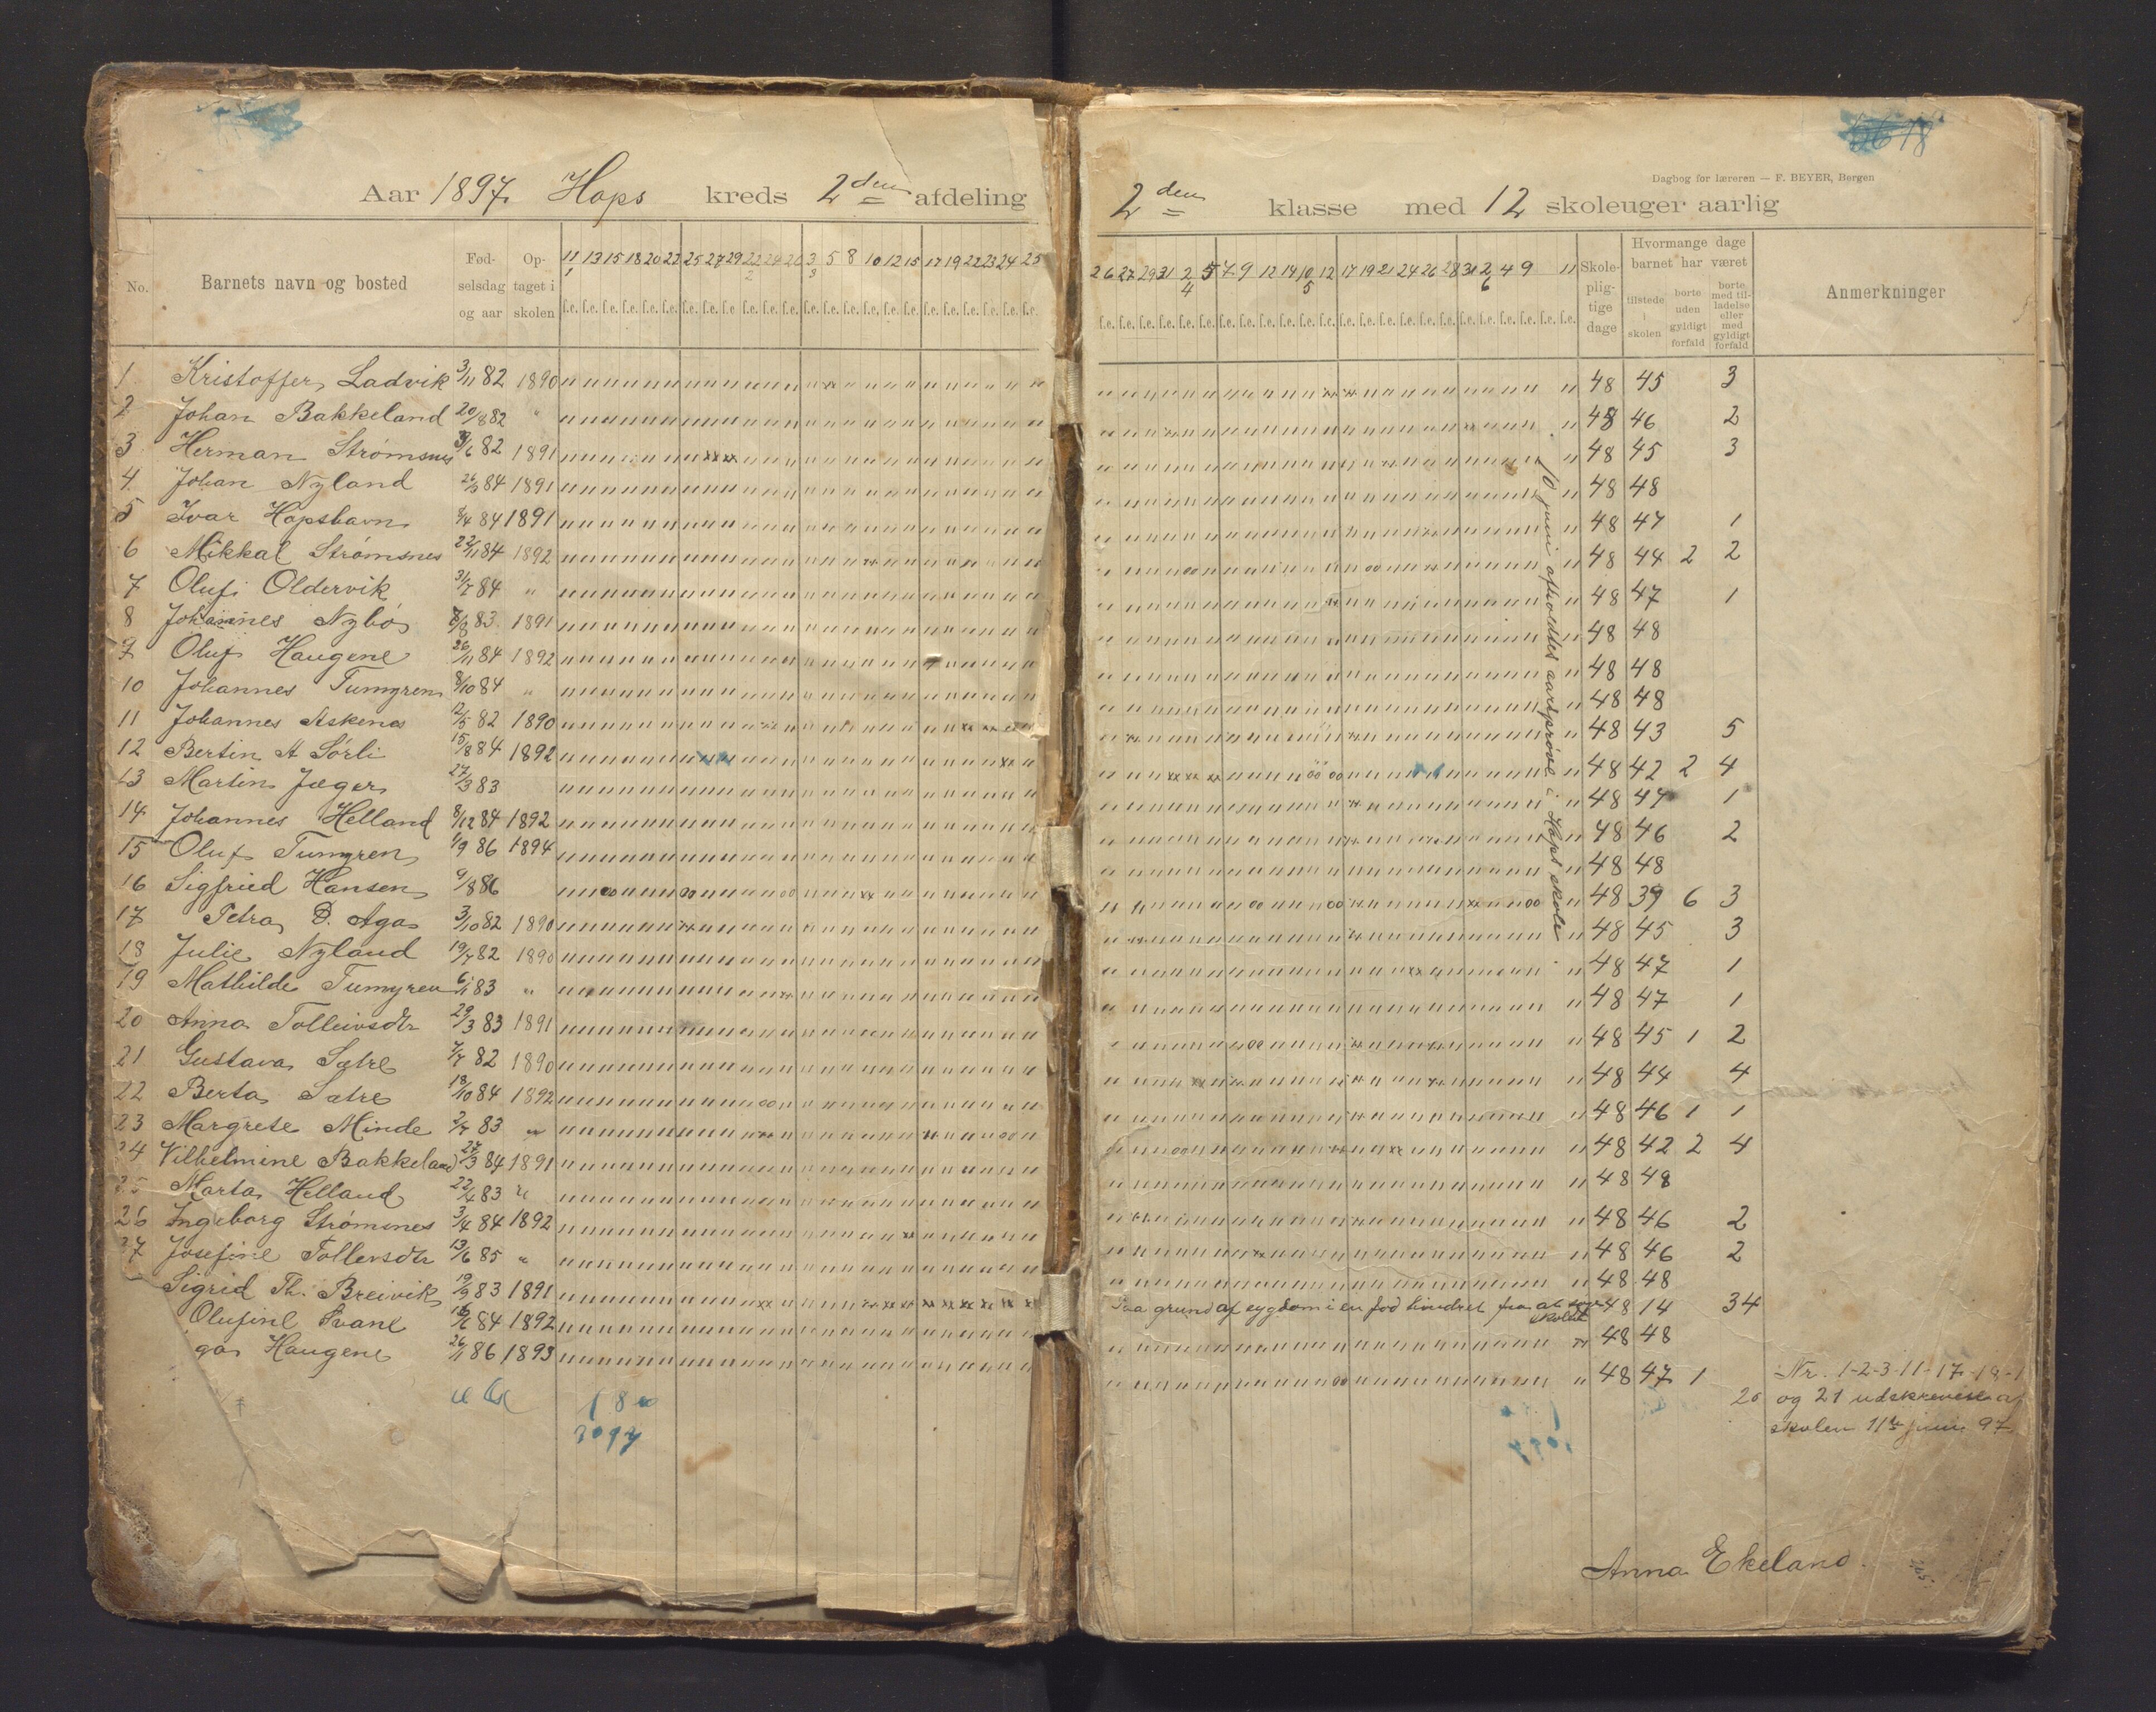 Dagbog for læreren — F. BEYER, Bergen
Aar 1897. Hops kreds 2den afdeling
2den klasse med 12 skoleuger aarlig
No. Barnets navn og bosted Fødselsdag og aar Optaget i skolen
Skolepligtige dage
Hvormange dage barnet har været
tilstede i skolen
borte uden gyldigt forfald
borte med tilladelse eller med gyldigt forfald
Anmerkninger
11/1 13 15 18 20 22 25 27 29 22/2 24 26 3/3 5 8 10 12 15 17 19 22 23 24 25
26 27 29 31 2/4 5 7 9 12 14 10/5 12 17 19 21 24 26 28 31 2/6 4 9 11
1 Kristoffer Ladvik 3/11 82 1890 48 45 3
2 Johan Bakkeland 20/8 82 " 48 46 2
3 Herman Strømsnes 3/6 82 1891 48 45 3
4 Johan Nyland 84 1891 48 48
5 Ivar Hopshavn 8/4 84 1891 48 47 1
6 Mikkal Strømsnes 22/11 84 1892 48 44 2 2
7 Oluf Oldervik 84 " 48 47 1
8 Johannes Nybø 83 1891 48 48
9 Oluf Haugene 26/11 84 1892 48 48
10 Johannes Tumyren 8/10 84 " 48 48
11 Johannes Askenes 12/5 82 1890 48 43 5
12 Bertin A Sørli 15/8 84 1892 48 42 2 4
13 Martin Jæger 27/3 83 48 47 1
14 Johannes Helland 8/12 84 1892 48 46 2
15 Oluf Tumyren 1/9 86 1894 48 48
16 Sigfried Hansen 9/8 86 48 39 6 3
17 Petra D. Aga 3/10 82 1890 48 45 3
18 Julie Nyland 19/7 82 1890 48 47 1
19 Mathilde Tumyren 6/11 83 " 48 47 1
20 Anna Tolleivsdtr 29/3 83 1891 48 45 1 2
21 Gustava Sætre 82 1890 48 44 4
22 Berta Sætre 18/10 84 1892 48 46 1 1
23 Margrete Minde 83 " 48 42 2 4
24 Vilhelmine Bakkeland 27/3 84 1891 48 48
25 Marta Helland 22/4 83 " 48 46 2
26 Ingeborg Strømsnes 3/4 84 1892 48 46 2
27 Josefine Tollevsdtr 13/6 85 " 48 48
Sigrid Th. Breivik 19/9 83 1891 Paa grund af sygdom i en fod hindret fra at søge skolen 48 14 34
Olufine Svane 84 1892 48 48
ga Haugene 26/11 86 1893 48 47 1
10 juni afholdtes aarsprøve i Hops skole
Nr. 1-2-3-11-17-18-1
20 og 21 udskrevne af
skolen 11te juni 97
Anna Ekeland.